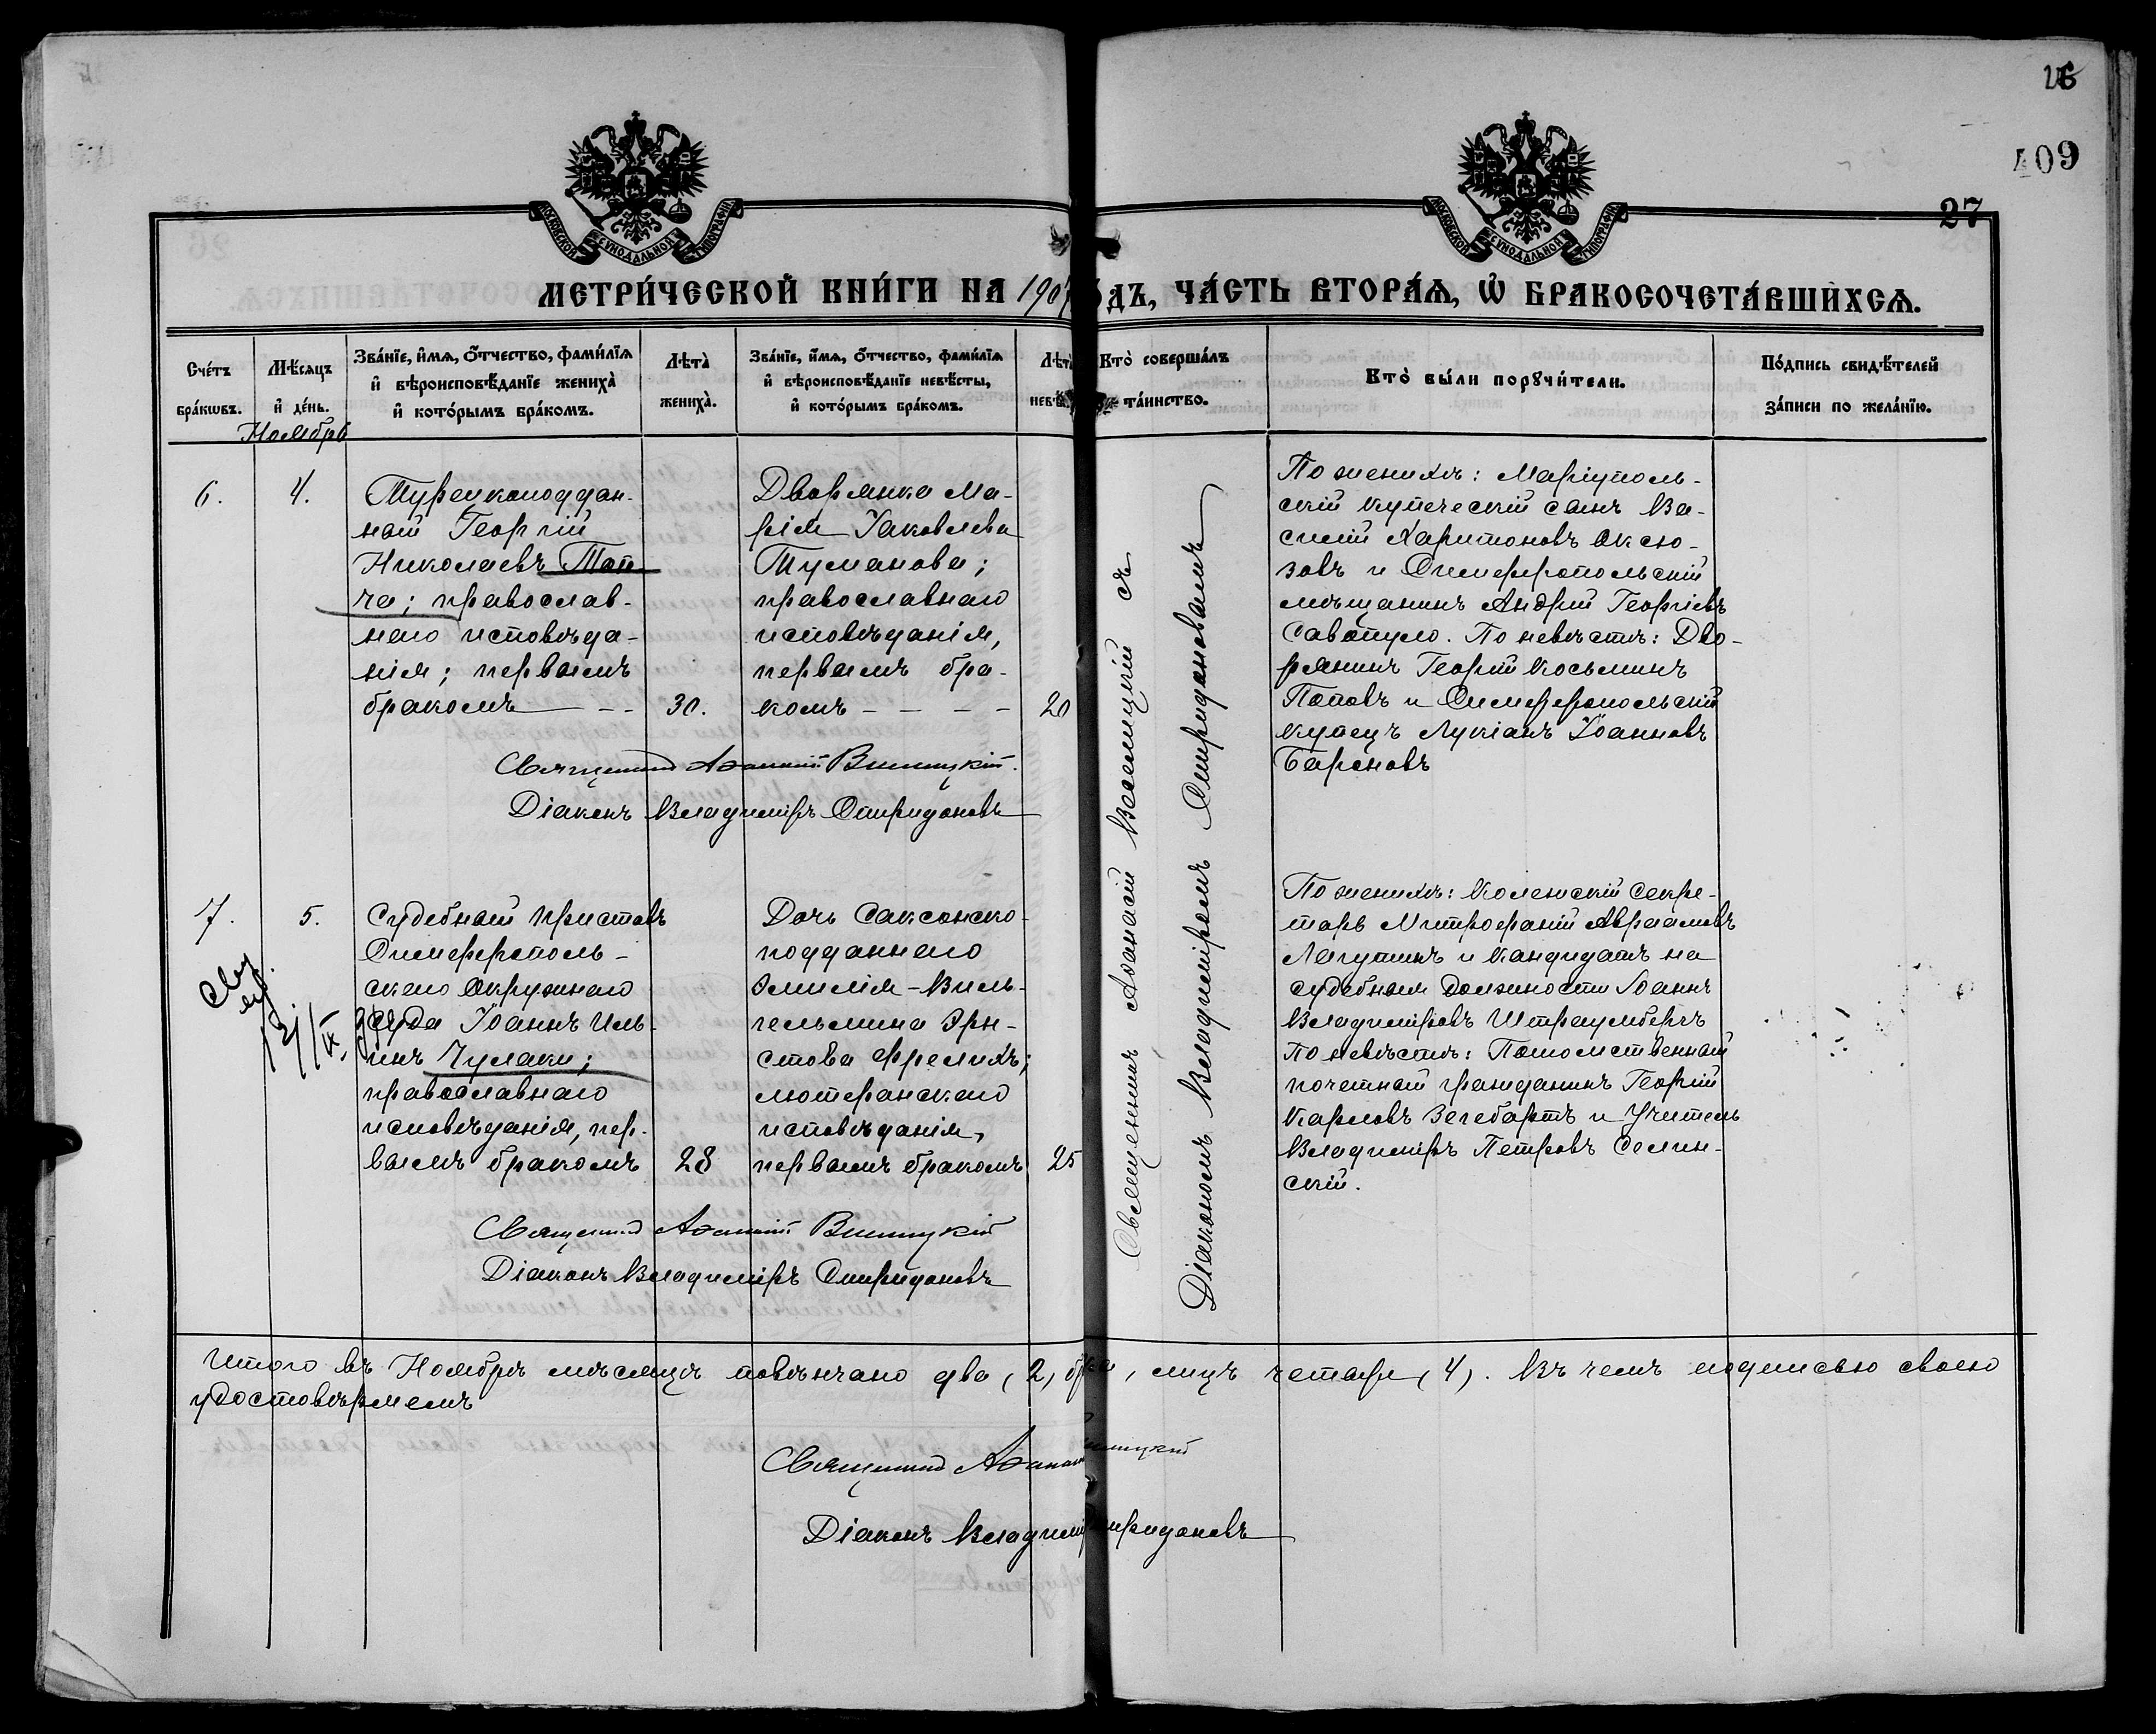 409
27
МОСКОВСКОЙ СѴНОДАЛЬНОЙ ТИПОГРАФІИ
МОСКОВСКОЙ СѴНОДАЛЬНОЙ ТИПОГРАФІИ
МЕТРИ́ЧЕСКОЙ КНИ́ГИ НА 1907 ДЪ, ЧА́СТЬ ВТОРА́Ѧ, Ѡ БРАКОСОЧЕТА́ВШИХСѦ.
Сче́тъ бра́кѡвъ.
Мѣ́сяцъ и҆ де́нь.
Зва́нїе, и҆́мѧ, ѻ҆́тчество, фами́лїѧ
и҆ вѣроисповѣ́данїе жениха̀
и҆ кото́рымъ бра́комъ.
Лѣта̀ жениха̀.
Зва́нїе, и҆́мѧ, ѻ҆́тчество, фами́лїѧ
и҆ вѣроисповѣ́данїе невѣ́сты,
и҆ кото́рымъ бра́комъ.
Лѣта̀ невѣ́
Кто̀ соверша́лъ та́инство.
Кто̀ бы́ли порꙋчи́тели.
По́дпись свидѣ́телей
за́писи по жела́нїю.
Ноябрь
6.
4.
Турецкоподдан-
ный Георгій
Николаевъ Топ
ча; православ-
наго исповѣда-
нія; первымъ
бракомъ — - -
30.
Дворянка Ма-
рія Іаковлева
Туманова;
православнаго
исповѣданія,
первымъ бра-
комъ - - - -
20
Священникъ Аѳанасій Висницкій съ
Діакономъ Владиміромъ Спиридоновымъ
По женихѣ: Маріуполь-
скій купеческій сынъ Ва-
силій Харитоновъ Оксю-
зовъ и Симферопольскій
мѣщанинъ Андрей Георгіевъ
Савопуло. По невѣстѣ: Дво-
рянинъ Георгій Косьминъ
Поповъ и Симферопольскій
купецъ Лукіанъ Іоанновъ
Бароновъ
Священникъ Аѳанасій
Діаконъ Владиміръ Спиридоновъ
7.
5.
Судебный приставъ
Симферополь-
скаго Окружнаго
суда Іоаннъ Иль-
инъ Чулаки;
православнаго
исповѣданія, пер-
вымъ бракомъ
28
Дочь Саксонско-
подданнаго
Эмилія-Виль-
гельмина Эрн-
стова Фрелихъ;
лютеранскаго
исповѣданія,
первымъ бракомъ
25
По женихѣ: Коллежскій Секре-
тарь Митрофаній Авраамовъ
Лагутинъ и Кандидатъ на
судебныя должности Іоаннъ
Владиміровъ Штраумбергъ
По невѣстѣ: Потомственный
почетный гражданинъ Георгій
Карловъ Зегебартъ и Учитель
Владиміръ Петровъ Солин-
скій.
Священникъ Аѳанасій
Діаконъ Владиміръ Спиридоновъ
Итого въ Ноябрѣ мѣсяцѣ повѣнчано два (2) , лицъ четыре (4). Въ чемъ подписью своею
удостовѣряемъ
Священникъ
Діаконъ Владиміръ Спиридоновъ